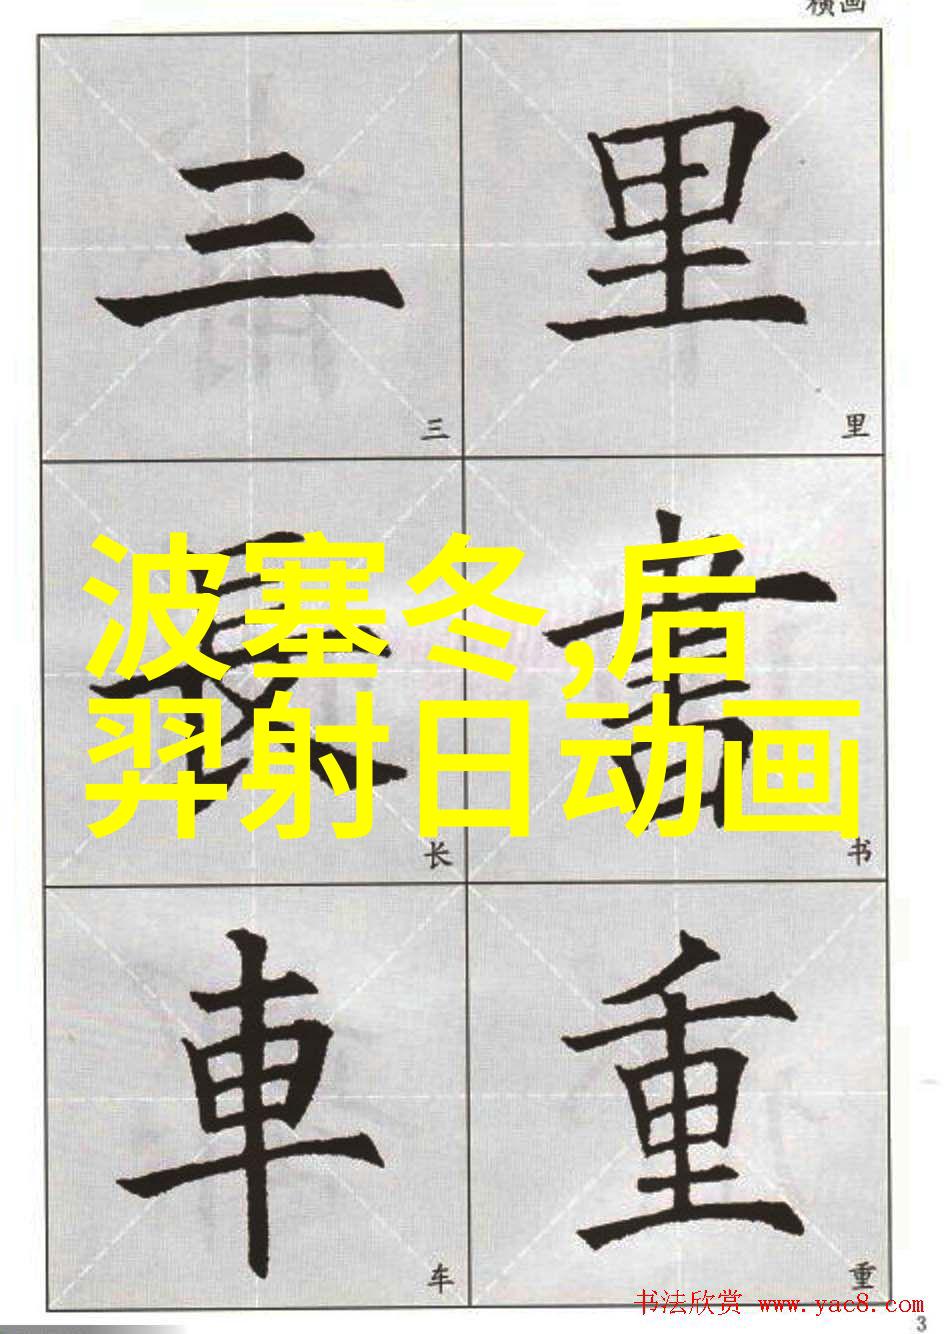 横画
三 里
三 里
長 書
波塞冬,后
羿射日动画
长 书
車 重
车 重
书法欣赏 www.yac8.com
3